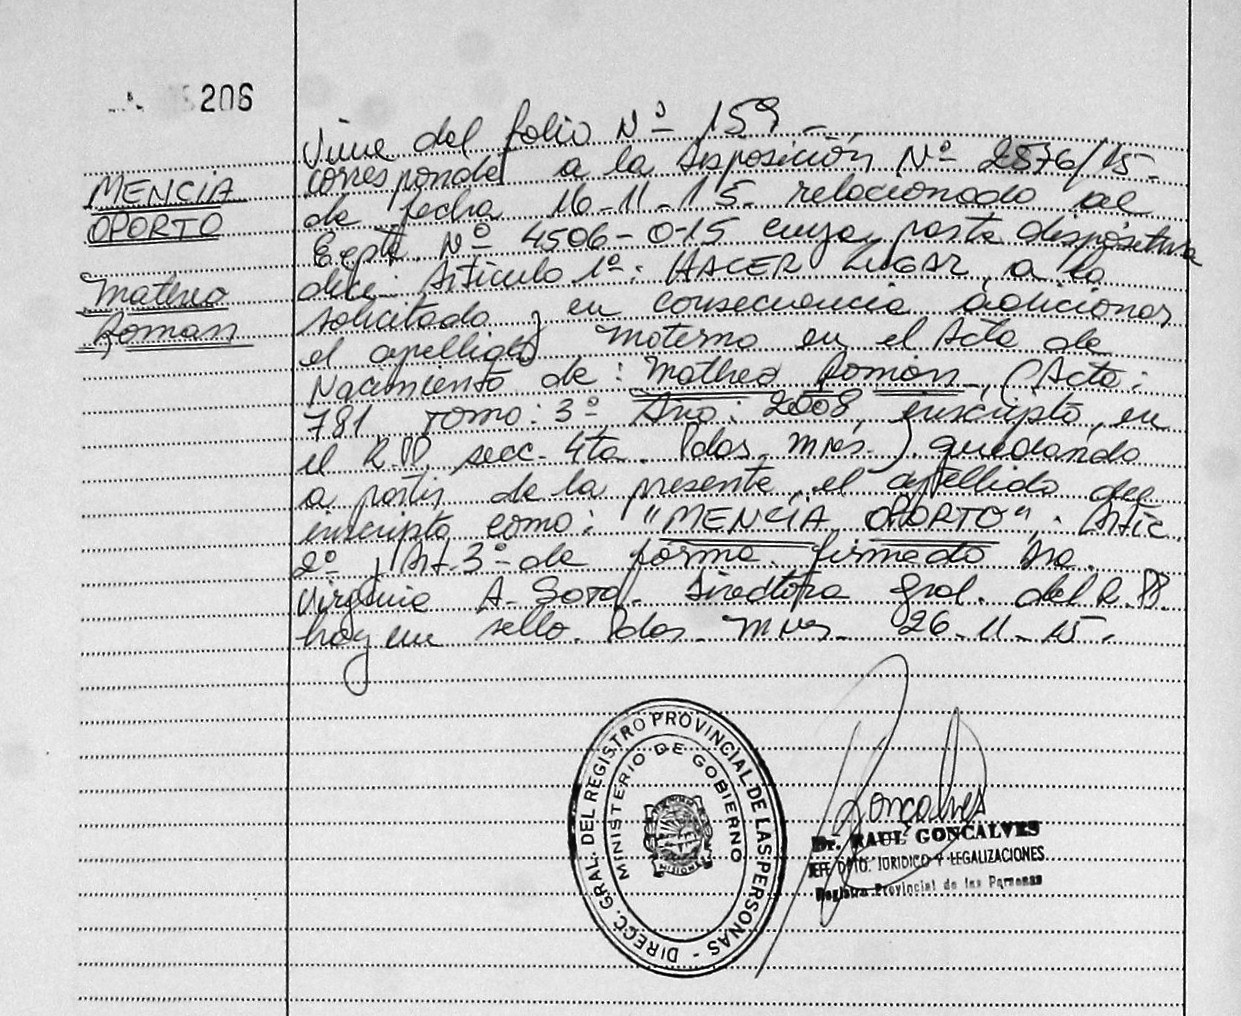 206
MENCIA
OPORTO
Matheo
Roman
Viene del folio Nº 159 -
corresponde a la Disposición Nº 2576/15-
de fecha 16-11-15 relacionado al
Expte. Nº 4506-0-15 cuya parte dispositiva
dice Artículo 1º: HACER LUGAR a lo
solicitado y en consecuencia adicionar
el apellido materno en el Acta de
Nacimiento de: Matheo Román, (Acta:
781 Tomo: 3º Año: 2008, inscripto en
el R.PP. secc. 4ta. Pdas. Mnes.) quedando
a partir de la presente el apellido del
inscripto como: "MENCIA OPORTO". Artic.
2º y Art. 3º de forma. firmado Dra.
Virginia A. Directora Gral. del R.PP.
hay un sello. Pdas. Mnes. 26-11-15.
DIRECC. GRAL. DEL REGISTRO PROVINCIAL DE LAS PERSONAS -
MINISTERIO DE GOBIERNO
MISIONES
Goncalves
Dr. RAUL GONCALVES
JEFE DPTO. JURIDICO Y LEGALIZACIONES
Registro Provincial de las Personas